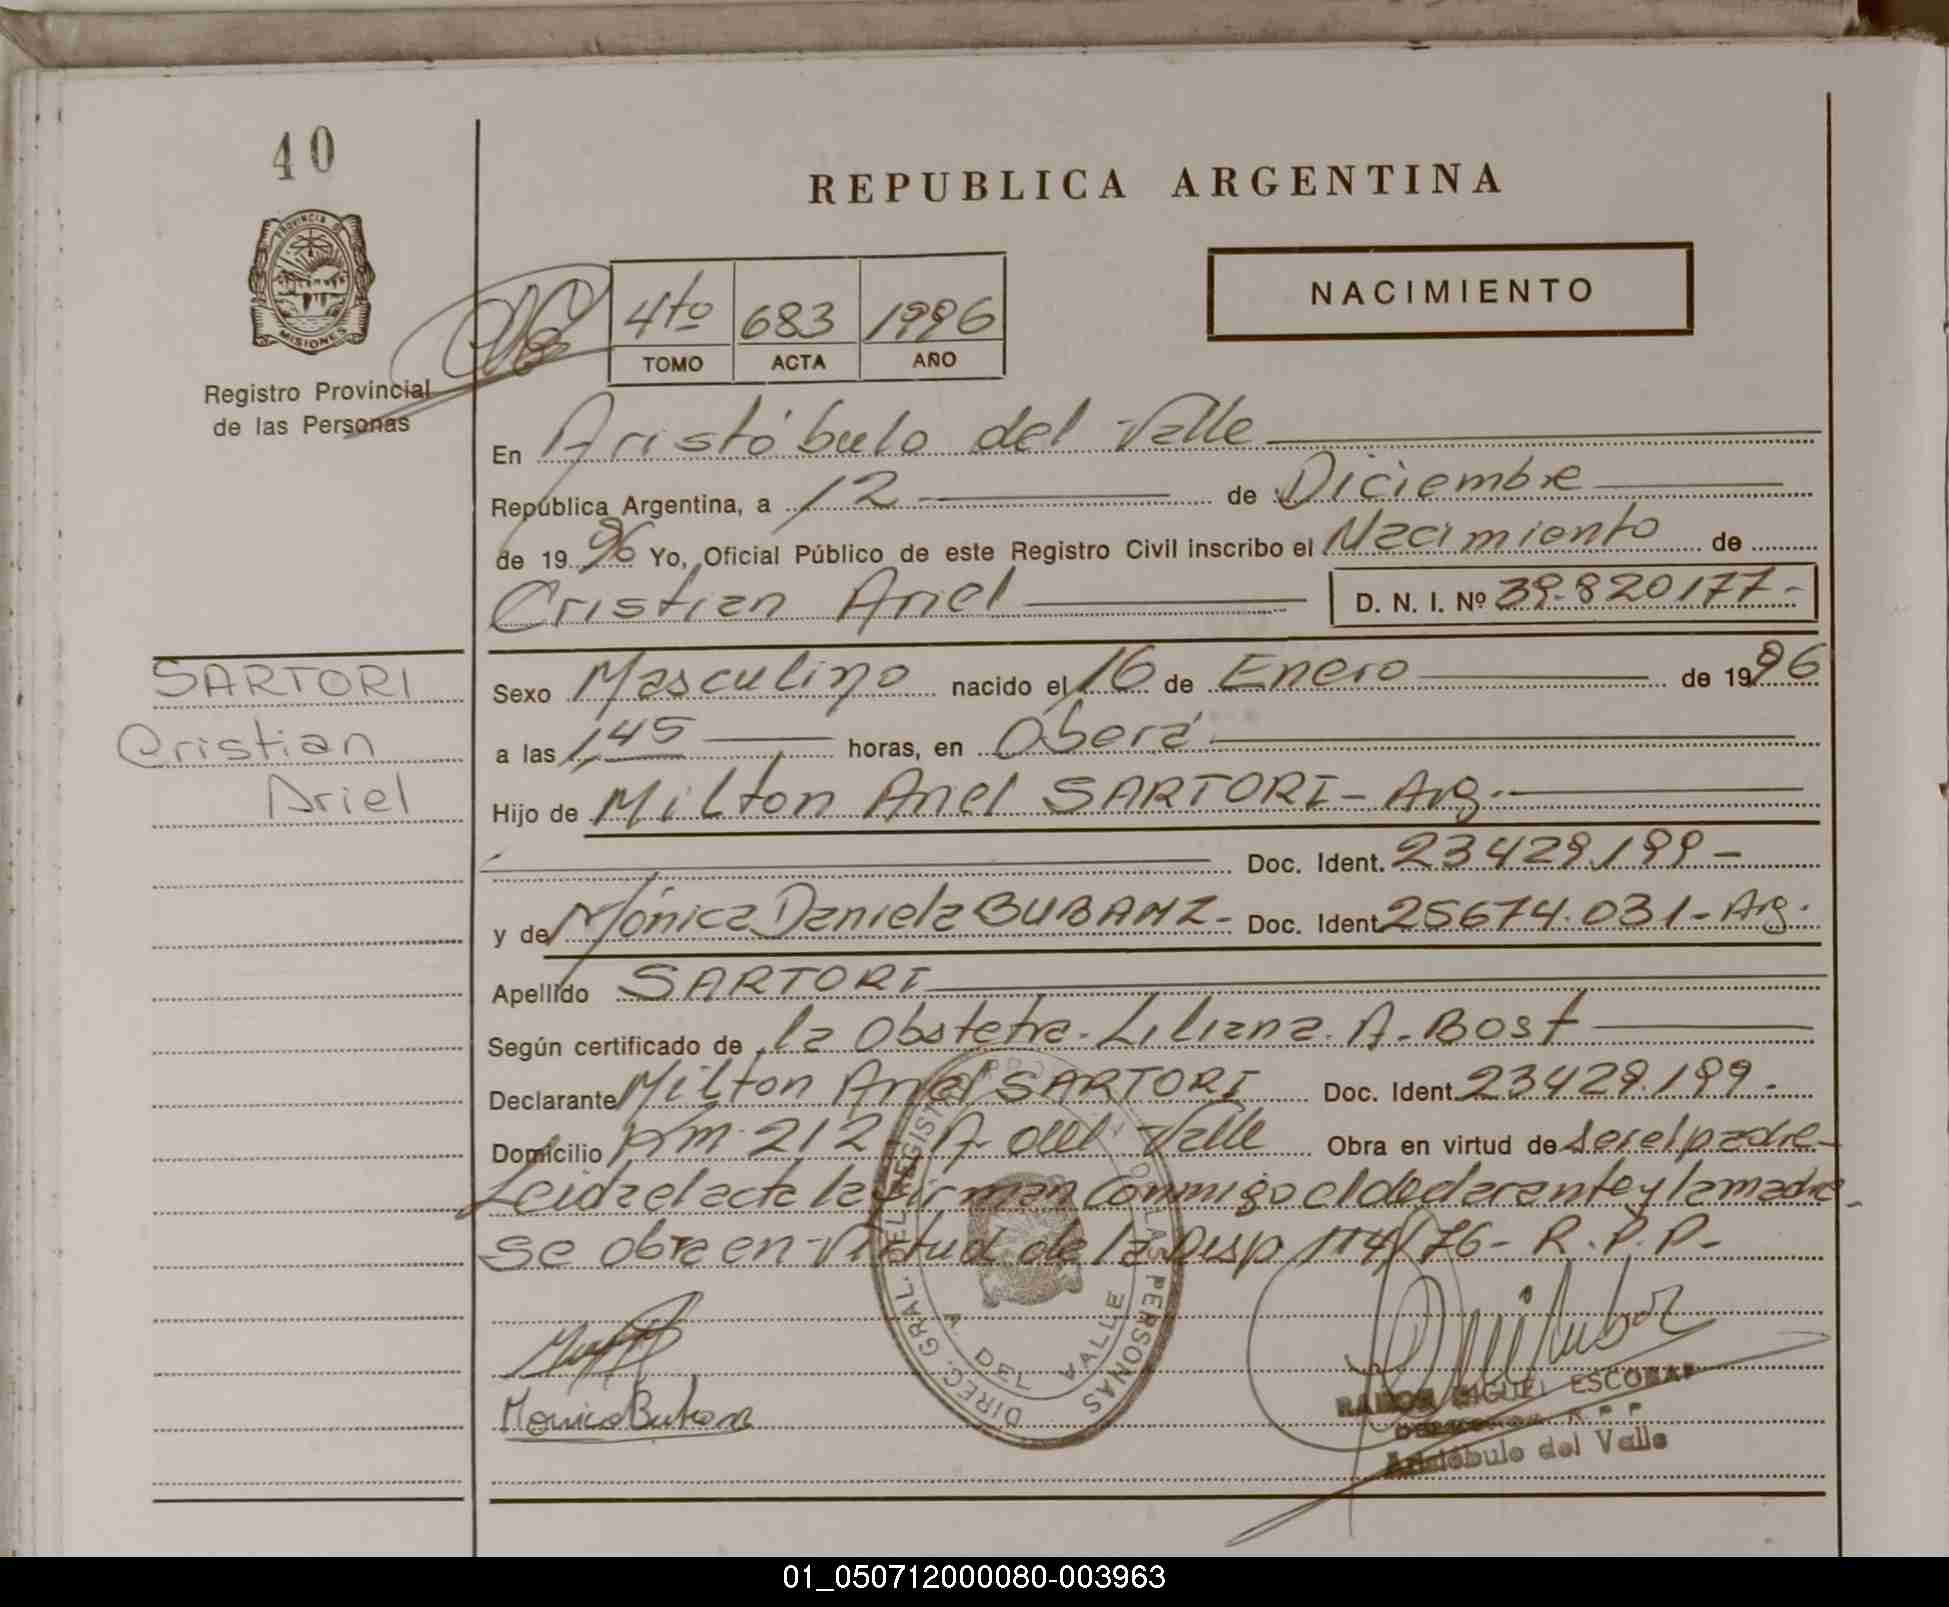 40
PROVINCIA DE
MISIONES
Registro Provincial
de las Personas
REPUBLICA ARGENTINA
4to 683 1996
TOMO ACTA AÑO
NACIMIENTO
En Aristóbulo del Valle
República Argentina, a 12 de Diciembre
de 1996 Yo, Oficial Público de este Registro Civil inscribo el Nacimiento de
Cristian Ariel D. N. I. Nº 39.820177-
SARTORI
Cristian
Ariel
Sexo Masculino nacido el 16 de Enero de 1996
a las 1,45 horas, en Oberá
Hijo de Milton Ariel SARTORI- Arg.
Doc. Ident. 23429.199-
y de Mónica Daniela Doc. Ident 25674.031- Arg.
Apellido SARTORI
Según certificado de la Obstetra. Liliana. A. Bost
Declarante Milton Ariel SARTORI Doc. Ident. 23429.199-
Domicilio Km. 212 A. del Valle Obra en virtud de ser el padre-
Leida el acta la firman conmigo el declarante y la madre-
se obra en virtud de la Disp. 114/76- R.P.P-
DIREC. GRAL. DEL REGISTRO DE LAS PERSONAS
A. DEL VALLE
Monica
RAMON MIGUEL ESCOBAR
R P P
Aristóbulo del Valle
01_050712000080-003963